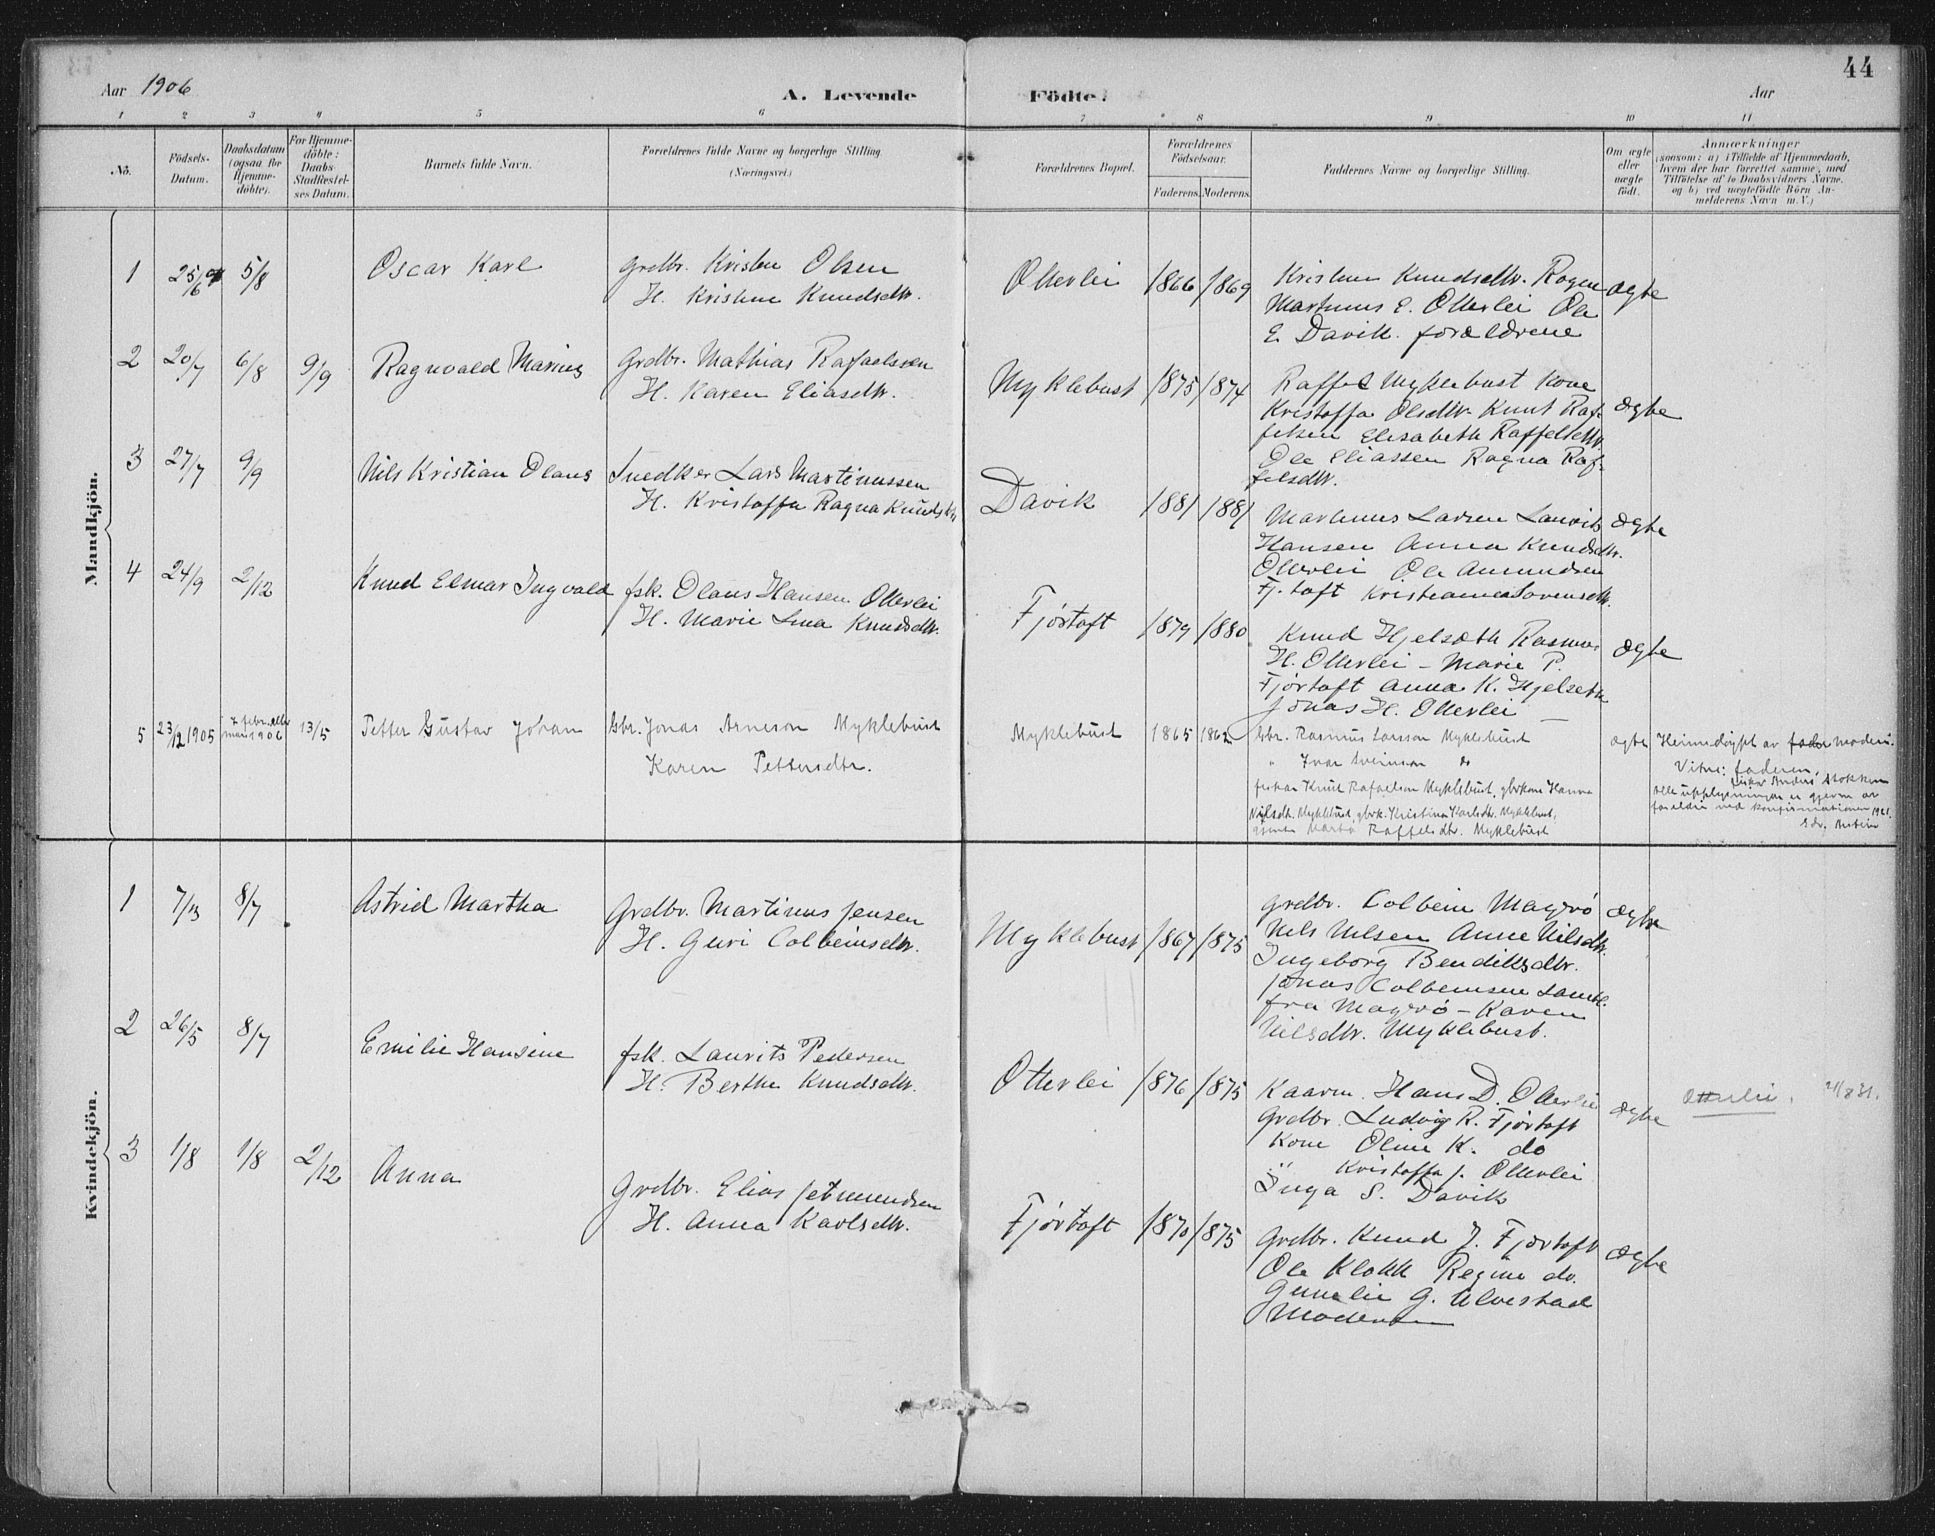 44
Aar 1906
A. Levende Födte.
Aar
1 2 3 4 5 6 7 8 9 10 11
No.
Födsels-Datum.
Daabsdatum (ogsaa for Hjemme-döbte).
For Hjemme-döbte: Daabs Stadfæstelses Datum.
Barnets fulde Navn.
Forældrenes fulde Navne og borgerlige Stilling
(Næringsvei.)
Forældrenes Bopæl.
Forældrenes Födselsaar.
Faderens. Moderens.
Faddernes Navne og borgerlige Stilling.
Om ægte eller uægte födt.
Anmærkninger
(saasom: a) i Tilfælde af Hjemmedaab,
hvem der har forrettet samme, med
Tilföielse af to Daabsvidners Navne,
og b) ved uægtefödte Börn An-
melderens Navn m. V.)
Mandkjön.
1 25/6 5/8 Oscar Karl
Grdbr. Kristen Olsen
H. Kristine Knudsdtr.
Otterlei 1866 1869
Kristine Knudsdtr. Ragna
Martinus E. Otterlei Ole
E. Davik. forældrene
ægte
2 20/7 6/8 9/9 Ragnvald Marius
Grdbr. Mathias Rafaelsen
H. Karen Eliasdtr.
Myklebust 1875 1874
Raffel Myklebust Kone
Kristoffa Olsdtr Knut Raf-
felsen Elisabeth Raffelsdtr.
Ole Eliassen Ragna Raf-
felsdtr.
ægte
3 27/7 9/9 Nils Kristian Olaus
Snedker Lars Martinussen
H. Kristoffa Ragna Knudsdtr
Davik 1881 1881
Martinus Larsen Laurits
Hansen Anna Knudsdtr.
Otterlei Ole Amundsen
Fj.toft Kristianna Sørensdtr.
ægte
4 24/9 2/12 Knud Elmar Ingvald
fsk. Olaus Hansen Otterlei
H. Marie Lina Knudsdtr.
Fjørtoft 1879 1880
Knud Hjelsæth Rasmus
H. Otterlei - Marie P.
Fjørtoft Anna K. Hjelseth
Jonas H. Otterlei
ægte
5 23/12 1905 7 febr. eller mars 1906 13/5 Petter Gustav Johan
Gbr. Jonas Arneson Myklebust
Karen Pettersdtr.
Myklebust 1865 1862
Gbr. Rasmus Larsson Myklebust
" Ivar Sveinson do
fiskar Knut Rafaelson Myklebust, gbrkone Hanna
Nilsdtr. Myklebust, gbrk. Kristina Karlsdtr. Myklebust,
gjenta Marta Raffelsdtr. Myklebust
ægte
Heimedøypt av fader moderi.
Vitne: faderen,
fiskar Anders Stokken
Alle upplysningar er gjevne av
foreldri ved konfirmationen 1921.
Kvindekjön.
1 7/3 8/7 Astrid Martha
Grdbr. Martinus Jensen
H. Guri Colbeinsdtr.
Myklebust 1867 1875
Grdbr. Colbein Magerø
Nils Nilsen Anne Nilsdtr.
Ingeborg Bendiksdtr.
Jonas Colbeinsen Samtl.
fra Magerø - Karen
Nilsdtr. Myklebust.
ægte
2 26/5 8/7 Emilie Hansine
fsk. Laurits Pedersen
H. Berthe Knudsdtr.
Otterlei 1876 1875
Kaarm. Hans D. Otterlei
Grdbr. Ludvig R. Fjørtoft
Kone Oline K. do
" Kristoffa J. Otterlei
Inga S. Davik
ægte
Otterlei. 21/8 31.
3 1/8 1/8 2/12 Anna
Grdbr. Elias Jetmundsen
H. Anna Karlsdtr.
Fjørtoft 1870 1875
Grdbr. Knud J. Fjørtoft
Ole Klokk Regine do.
Gunelie G. Ulvestad
Moderen
ægte